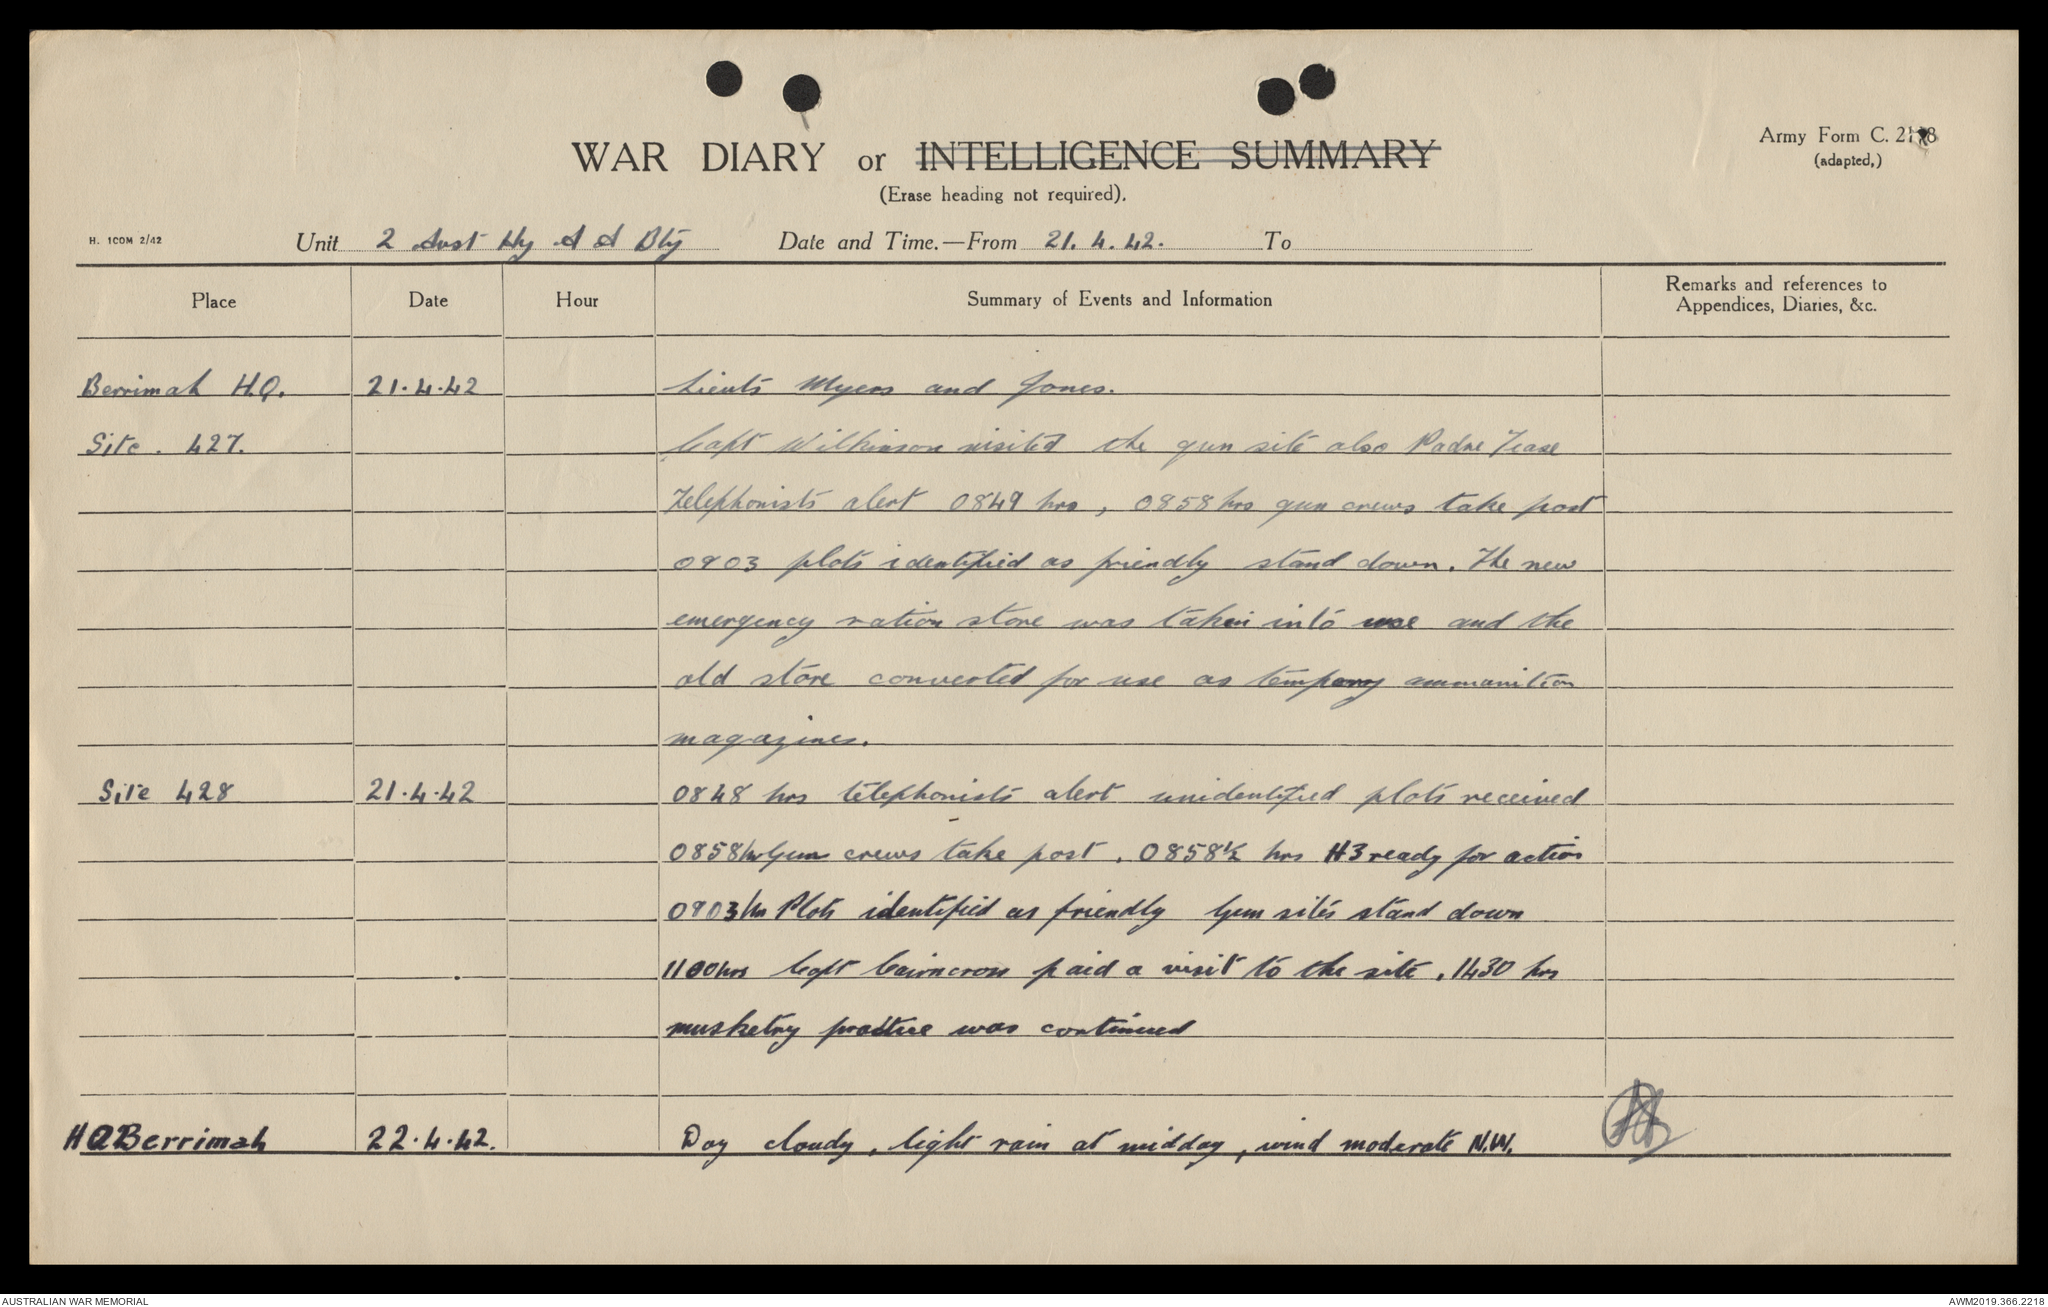 Army Form C. 2118
(adapted.)
WAR DIARY or INTELLIGENCE SUMMARY
(Erase heading not required).
H. 1COM 2/42
Unit 2 Aust Hy A A Bty Date and Time.—From 21. 4. 42. To
Place Date Hour Summary of Events and Information Remarks and references to Appendices, Diaries, &c.
Berrimah H.Q. 21.4.42 Lieuts Myers and Jones.
Site. 427. Capt Wilkinson visited the gun site also Padre Tease
Telephonists alert 0849 hrs, 0858 hrs gun crews take post
0903 plots identified as friendly stand down. The new
emergency ration store was taken into use and the
old store converted for use as tempory ammunition
magazines.
Site 428 21.4.42 0848 hrs telephonists alert unidentified plots received
0858 hr Gun crews take post. 0858½ hrs H3 ready for action
0903 hr Plots identified as friendly Gun sites stand down
1100 hrs Capt Cairncross paid a visit to the site. 1430 hrs
musketry practice was continued
HQ Berrimah 22.4.42. Day cloudy, light rain at midday, wind moderate N.W.
AUSTRALIAN WAR MEMORIAL AWM2019.366.2218